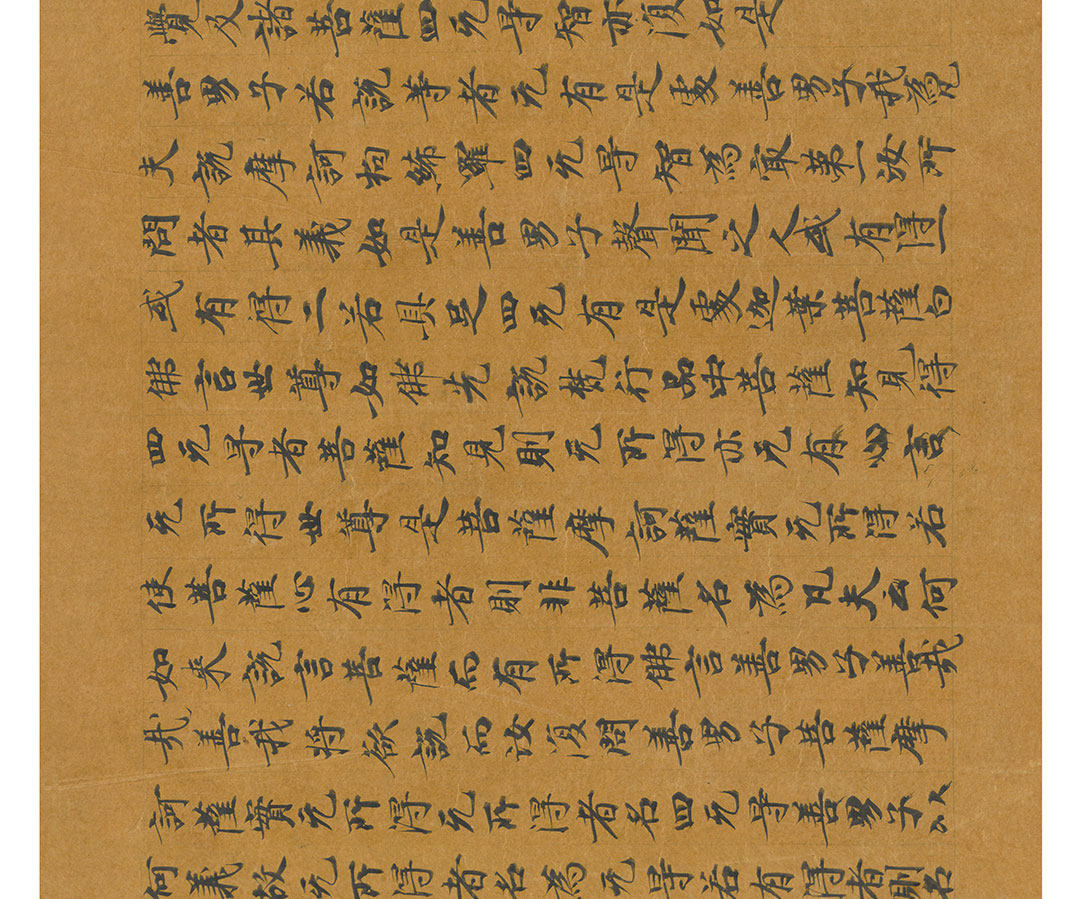 覺及諸菩薩四无㝵智亦復如是
善男子若說等者无有是處善男子我為凡
夫說摩訶拘絺羅四无㝵智為冣第一汝所
問者其義如是善男子聲聞之人或有得一
或有得二若具足四无有是處迦葉菩薩白
佛言世尊如佛先說梵行品中菩薩知見得
四无㝵者菩薩知見則无所得亦无有心言
无所得世尊是菩薩摩訶薩實无所得若
使菩薩心有得者則非菩薩名為凡夫云何
如来說言菩薩而有所得佛言善男子善哉
善我將欲說而汝復問善男子菩薩摩
訶薩實无所得无所得者名四无㝵善男子以
何義故无所得者名為无㝵若有得者則名